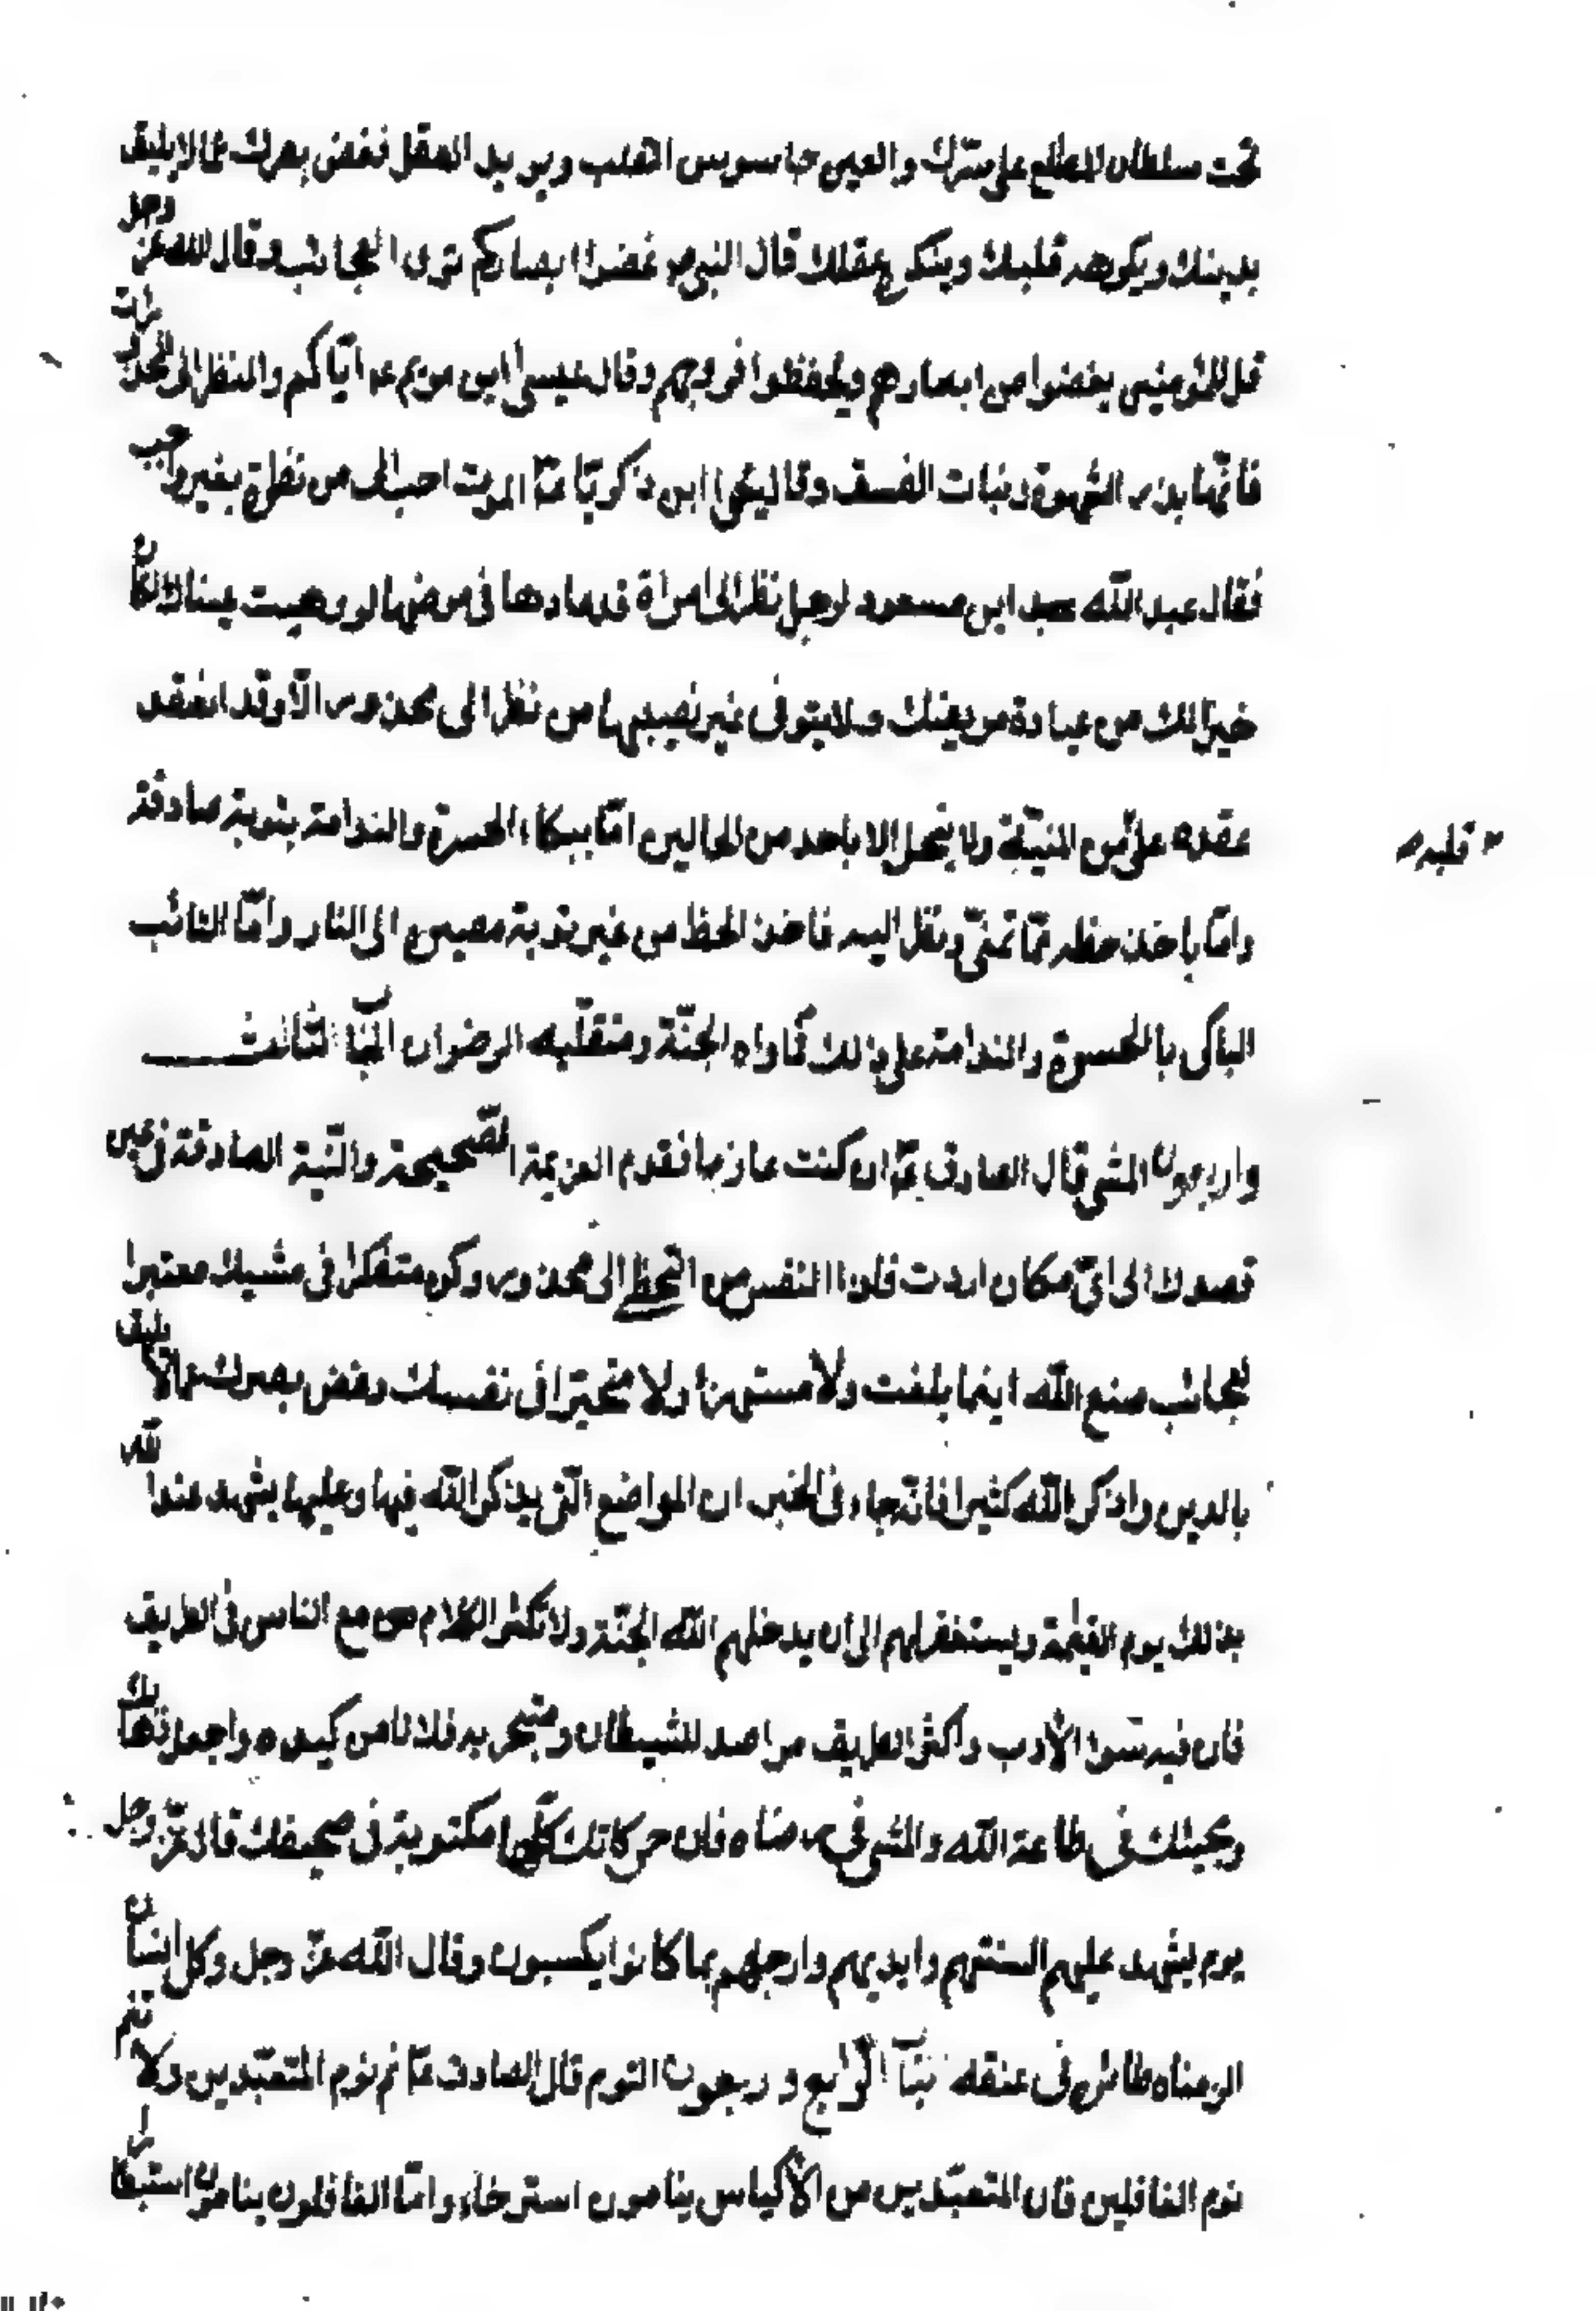 تحت سلطان المطلع على سترك والعين جاسوس القلب وبريد العقل فغض بصرك عما لا يليق
بدينك ويكرهه قلبك وينكره عقلك قال النبي ص غضوا ابصاركم ترى العجائب وقال الله عز وجل
قل للمؤمنين يغضوا من ابصارهم ويحفظوا فروجهم وقال عيسى ابن مريم ع اياكم والنظر الى المحذورات
فانها بذر الشهوة ونبات الفسق وقال يحيى ابن زكريا ع الموت احب الى من نظرة بغير واجب
فقال عبد الله ابن مسعود لرجل نظر الى امراة قد عادها في مرضها لو ذهبت عيناك لكان
خيرا لك من عيادة مريضك ولا يتوفى عين نصيبها من نظر الى محذور الا وقد انعقد
عقدة على من المنية ولا ينحل الا باحد من الحالين اما ببكاء الحسرة والندامة بتوبة صادقة
قلبه
واما باخذ حظه مما تمنى ونظر اليه فاخذ الحظ من غير توبة مصيره الى النار واما التائب
الباكي بالحسرة والندامة على ذلك فماواه الجنة ومنقلبه الرضوان الباب الثالث
واربعون المشي قال الصادق ع ان كنت عازما فقدم العزيمة الصحيحة والنية الصادقة في عين
قصدك الى اي مكان اردت فان النفس من التخطى الى محذور وكن متفكرا في مشيك معتبرا
لعجائب صنع الله اينما بلغت ولا مستهزءا ولا متبخترا في نفسك وغض بصرك عما لا يليق
بالدين واذكر الله كثيرا فانه جاء في الخبر ان المواضع التي يذكر الله فيها وعليها يشهد عند الله
بذلك يوم القيمة ويستغفر لهم الى ان يدخلهم الله الجنة ولا تكثر الكلام مع الناس في الطريق
فان فيه سوء الادب واكثر الطريق مراصد للشيطان ومتجره فلا تامن كيده واجعل ذهابك
ومجيئك في طاعة الله والمشي في رضاه فان حركاتك كلها مكتوبة في صحيفتك قال عز وجل
يوم يشهد عليهم السنتهم وايديهم وارجلهم بما كانوا يكسبون وقال الله عز وجل وكل انسان
الزمناه طائره في عنقه باب الرابع و ربعون النوم قال الصادق ع نم نوم المتعبدين ولا تنم
نوم الغافلين فان المتعبدين من الاكياس ينامون استرخاء واما الغافلون ينامون استبكارا